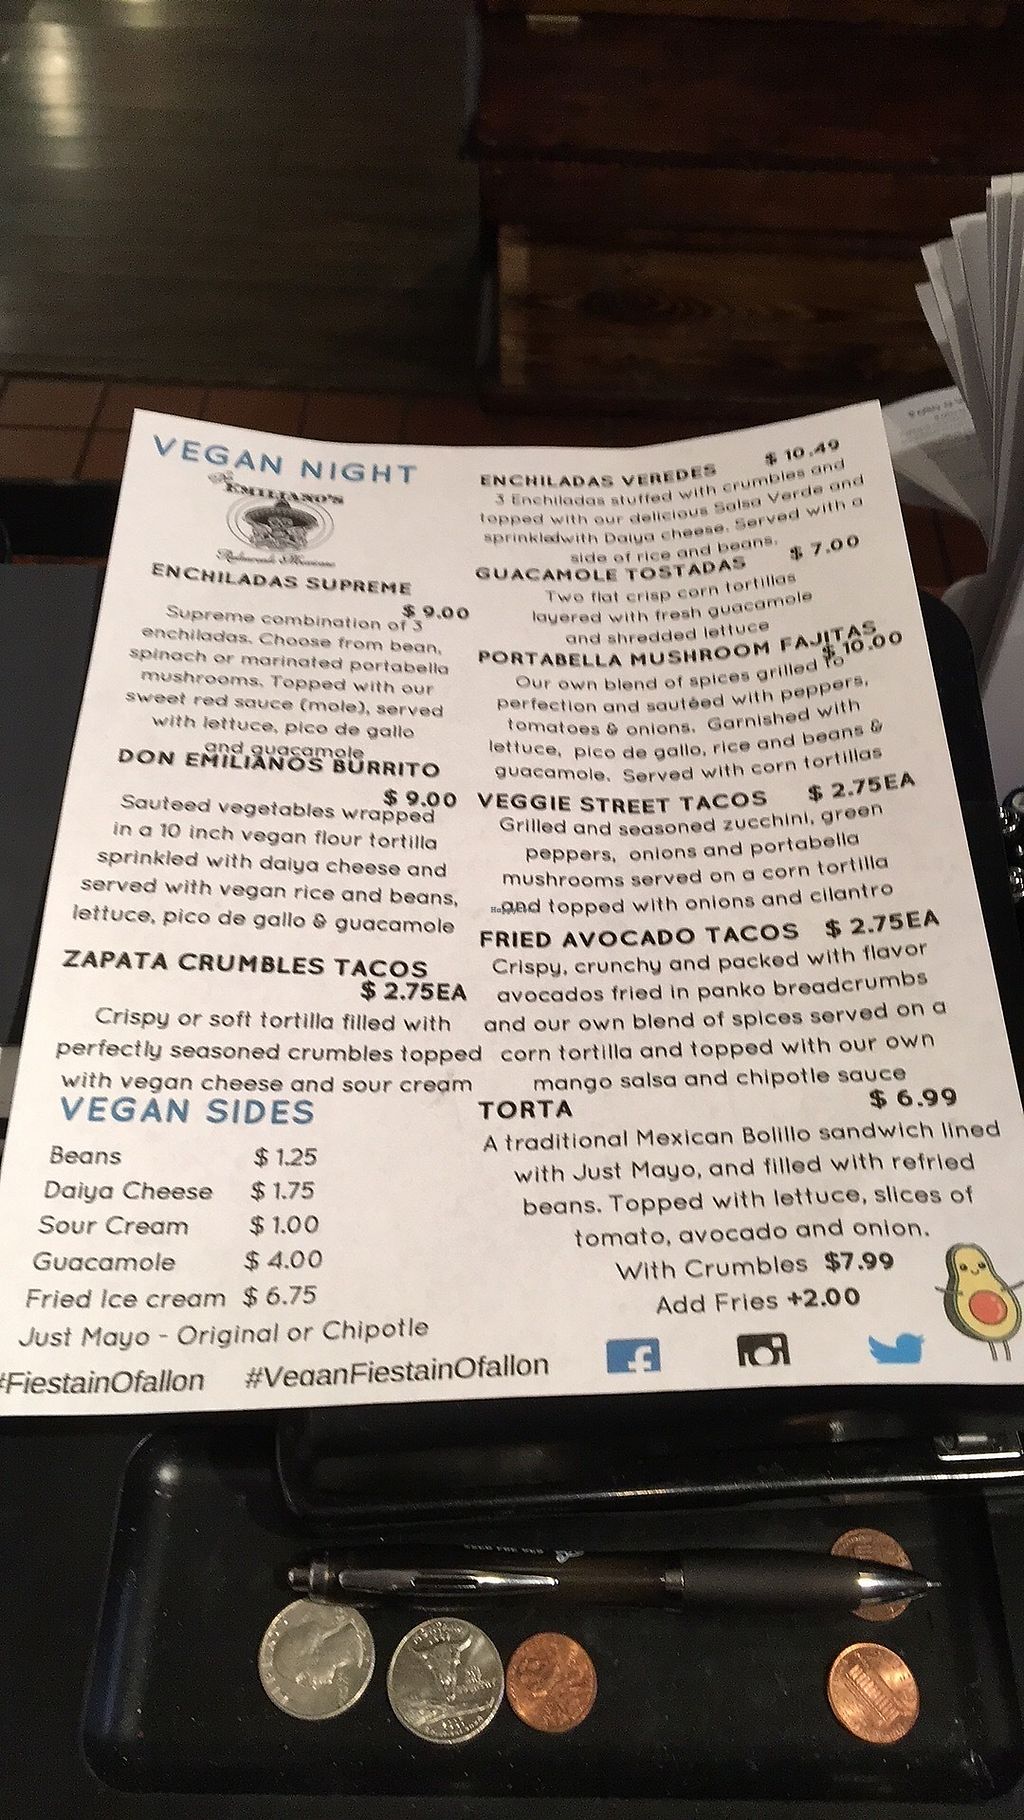 VEGAN NIGHT
EMILIANO'S
ENCHILADAS SUPREME
$ 9.00
Supreme combination of 3
enchiladas. Choose from bean,
spinach or marinated portabella
mushrooms. Topped with our
sweet red sauce (mole), served
with lettuce, pico de gallo
and guacamole
DON EMILIANOS BURRITO
$ 9.00
Sauteed vegetables wrapped
in a 10 inch vegan flour tortilla
sprinkled with daiya cheese and
served with vegan rice and beans,
lettuce, pico de gallo & guacamole
ZAPATA CRUMBLES TACOS
$ 2.75EA
Crispy or soft tortilla filled with
perfectly seasoned crumbles topped
with vegan cheese and sour cream
VEGAN SIDES
Beans $ 1.25
Daiya Cheese $ 1.75
Sour Cream $ 1.00
Guacamole $ 4.00
Fried Ice cream $ 6.75
Just Mayo - Original or Chipotle
#FiestainOfallon #VeganFiestainOfallon
ENCHILADAS VEREDES $ 10.49
3 Enchiladas stuffed with crumbles and
topped with our delicious Salsa Verde and
sprinkledwith Daiya cheese. Served with a
side of rice and beans.
GUACAMOLE TOSTADAS $ 7.00
Two flat crisp corn tortillas
layered with fresh guacamole
and shredded lettuce
PORTABELLA MUSHROOM FAJITAS
$ 10.00
Our own blend of spices grilled to
perfection and sautéed with peppers,
tomatoes & onions. Garnished with
lettuce, pico de gallo, rice and beans &
guacamole. Served with corn tortillas
VEGGIE STREET TACOS $ 2.75EA
Grilled and seasoned zucchini, green
peppers, onions and portabella
mushrooms served on a corn tortilla
and topped with onions and cilantro
FRIED AVOCADO TACOS $ 2.75EA
Crispy, crunchy and packed with flavor
avocados fried in panko breadcrumbs
and our own blend of spices served on a
corn tortilla and topped with our own
mango salsa and chipotle sauce
TORTA $ 6.99
A traditional Mexican Bolillo sandwich lined
with Just Mayo, and filled with refried
beans. Topped with lettuce, slices of
tomato, avocado and onion.
With Crumbles $7.99
Add Fries +2.00